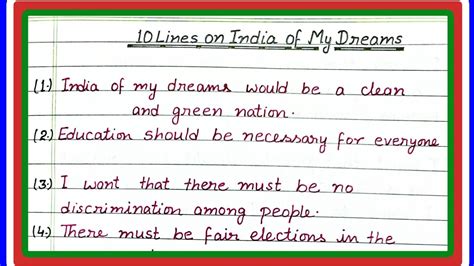 10 Lines on India of My Dreams
(1.) India of my dreams would be a clean
and green nation.
(2.) Education should be necessary for everyone
(3.) I wont that there must be no
discrimination among people.
(4.) There must be fair elections in the